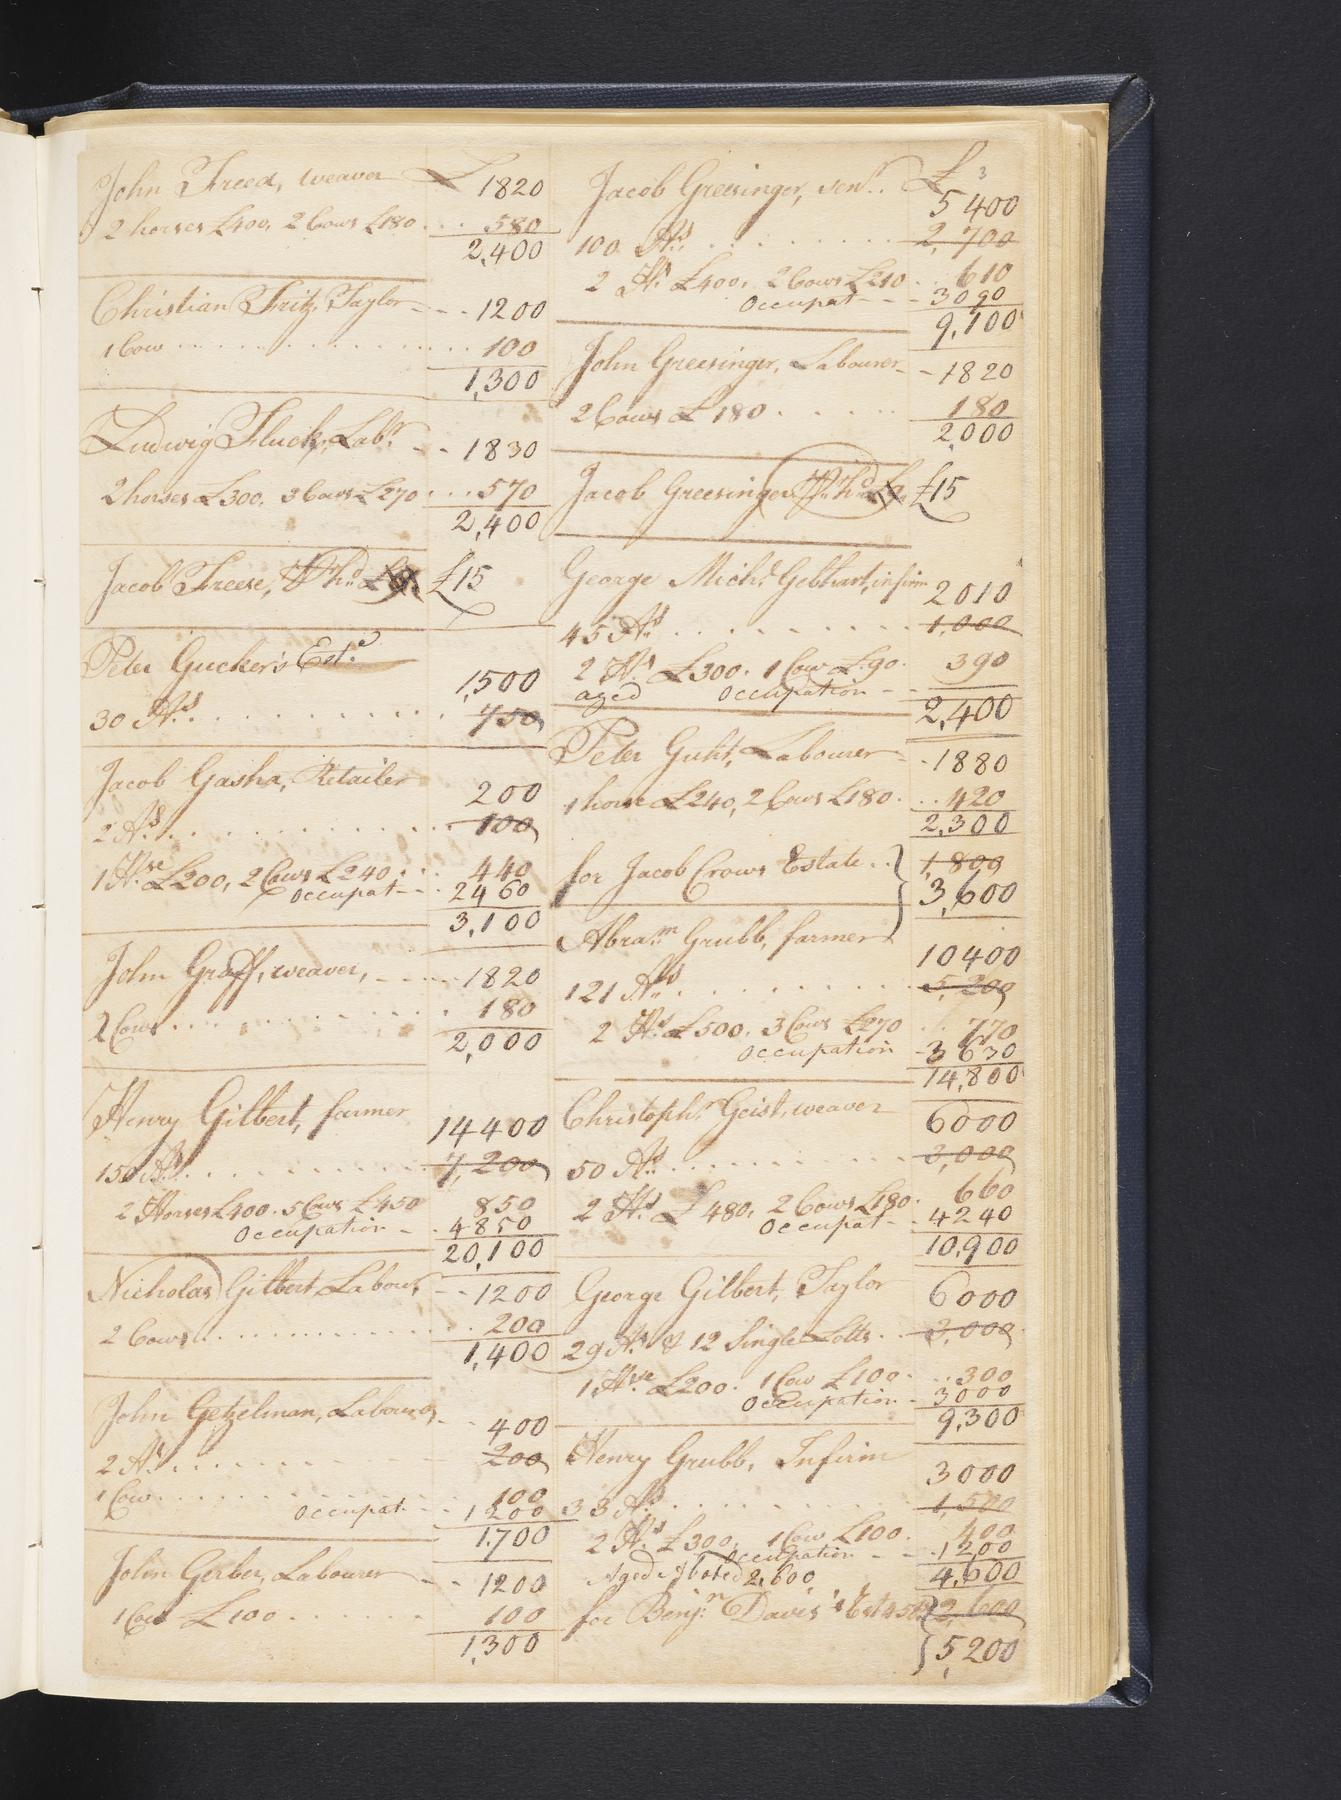 John Freed, weaver £ 1820
2 horses £400, 2 Cows £180 . . . 580
2,400
Christian Fritz, Taylor - - - 1200
1 Cow . . . . . . . . . . . . 100
1,300
Ludwig Fluck, Labr. - - 1830
2 horses £300. 3 Cows £270 . . . 570
2,400
Jacob Freese, £15
Peter Gucker's Este.
1,500
30 As. . . . . . . . . . . . 750
Jacob Gasha, Retailer
200
2 As. . . . . . . . . . . . 100
1 Hrse £200, 2 Cows £240 . . . 440
Occupat - - 2460
3,100
John Graff, weaver, - - - 1820
2 Cows . . . . . . . . . . . 180
2,000
Henry Gilbert, farmer
14400
150 As. . . . . . . . . . 7,200
2 Horses £400. 5 Cows £450 850
Occupation - 4850
20,100
Nicholas Gilbert, Labour. - - 1200
2 Cows . . . . . . . . . . . 200
1,400
John Getzelman, Labourer - -
400
2 As. . . . . . . . . . . 200
1 Cow . . . . . . . . . . 100
Occupat - - 1200
1700
John Gerber, Labourer - - 1200
1 Cow £100 . . . . . . 100
1,300
3
Jacob Greesinger, senr. . £
5400
100 As. . . . . . . . . 2,700
2 Hs. £400, 2 Cows £210 . . 610
Occupat - - - 3090
9,100
John Greesinger, Labourer - - 1820
2 Cows £180 . . . . . 180
2,000
Jacob Greesinger £15
George Michl. Gebhart, infirm
2010
45 As. . . . . . . . . 1,000
2 Hs. £300. 1 Cow £90. 390
aged Occupation - -
2,400
Peter Guht, Labourer - - 1880
1 horse £240, 2 Cows £180 . . . 420
2,300
for Jacob Crows Estate . . } 1,800
3,600
Abram. Grubb, farmer
10400
121 As. . . . . . . . . 5,200
2 Hs. £500. 3 Cows £270 . . 770
Occupation - 3630
14,800
Christophr. Geist, weaver
6000
50 As. . . . . . . . . 3,000
2 Hs. £480, 2 Cows £180. 660
Occupat - - 4240
10,900
George Gilbert, Taylor 6000
29 As. & 12 Single Lotts . . 3,000
1 Hrse £200. 1 Cow £100 . . . 300
Occupation - 3000
9,300
Henry Grubb, Infirm
3000
33 As. . . . . . . . . 1,500
2 Hs. £300, 1 Cow £100. 400
Occupation - - 1200
Aged Abated 2,600 4,600
for Benjn. Davis's Est 45 } 2,600
5,200